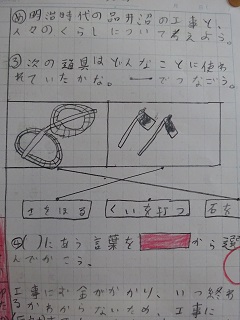 め 明治時代の品井沼の工事と、
人々のくらしについて考えよう。
③ 次の道具はどんなことに使わ
れていたかな。 ― でつなごう。
土をほる くいを打つ 石を
④( )に合う言葉を から選
んでかこう。
工事にお金がかかり、いつ終わ
るか わからないため、工事に